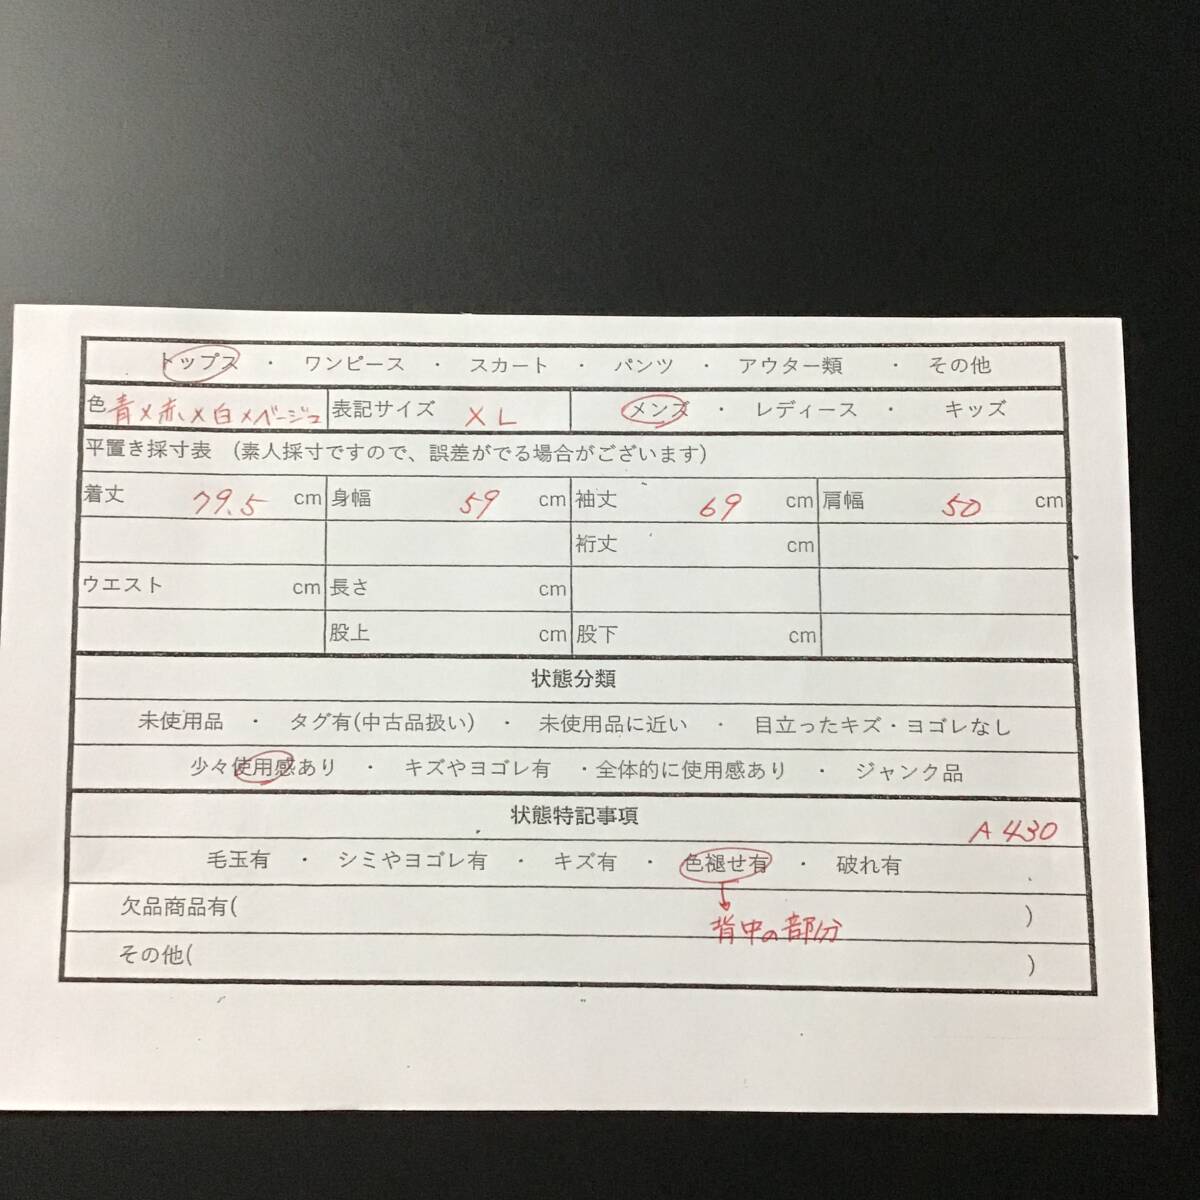 トップス ・ ワンピース ・ スカート ・ パンツ ・ アウター類 ・ その他
色 青×赤×白×ベージュ 表記サイズ XL メンズ ・ レディース ・ キッズ
平置き採寸表 (素人採寸ですので、誤差がでる場合がございます)
着丈 79.5 cm 身幅 59 cm 袖丈 69 cm 肩幅 50 cm
裄丈 cm
ウエスト cm 長さ cm
股上 cm 股下 cm
状態分類
未使用品 ・ タグ有(中古品扱い) ・ 未使用品に近い ・ 目立ったキズ・ヨゴレなし
少々使用感あり ・ キズやヨゴレ有 ・全体的に使用感あり ・ ジャンク品
状態特記事項
A430
毛玉有 ・ シミやヨゴレ有 ・ キズ有 ・ 色褪せ有 ・ 破れ有
欠品商品有( )
背中の部分
その他( )